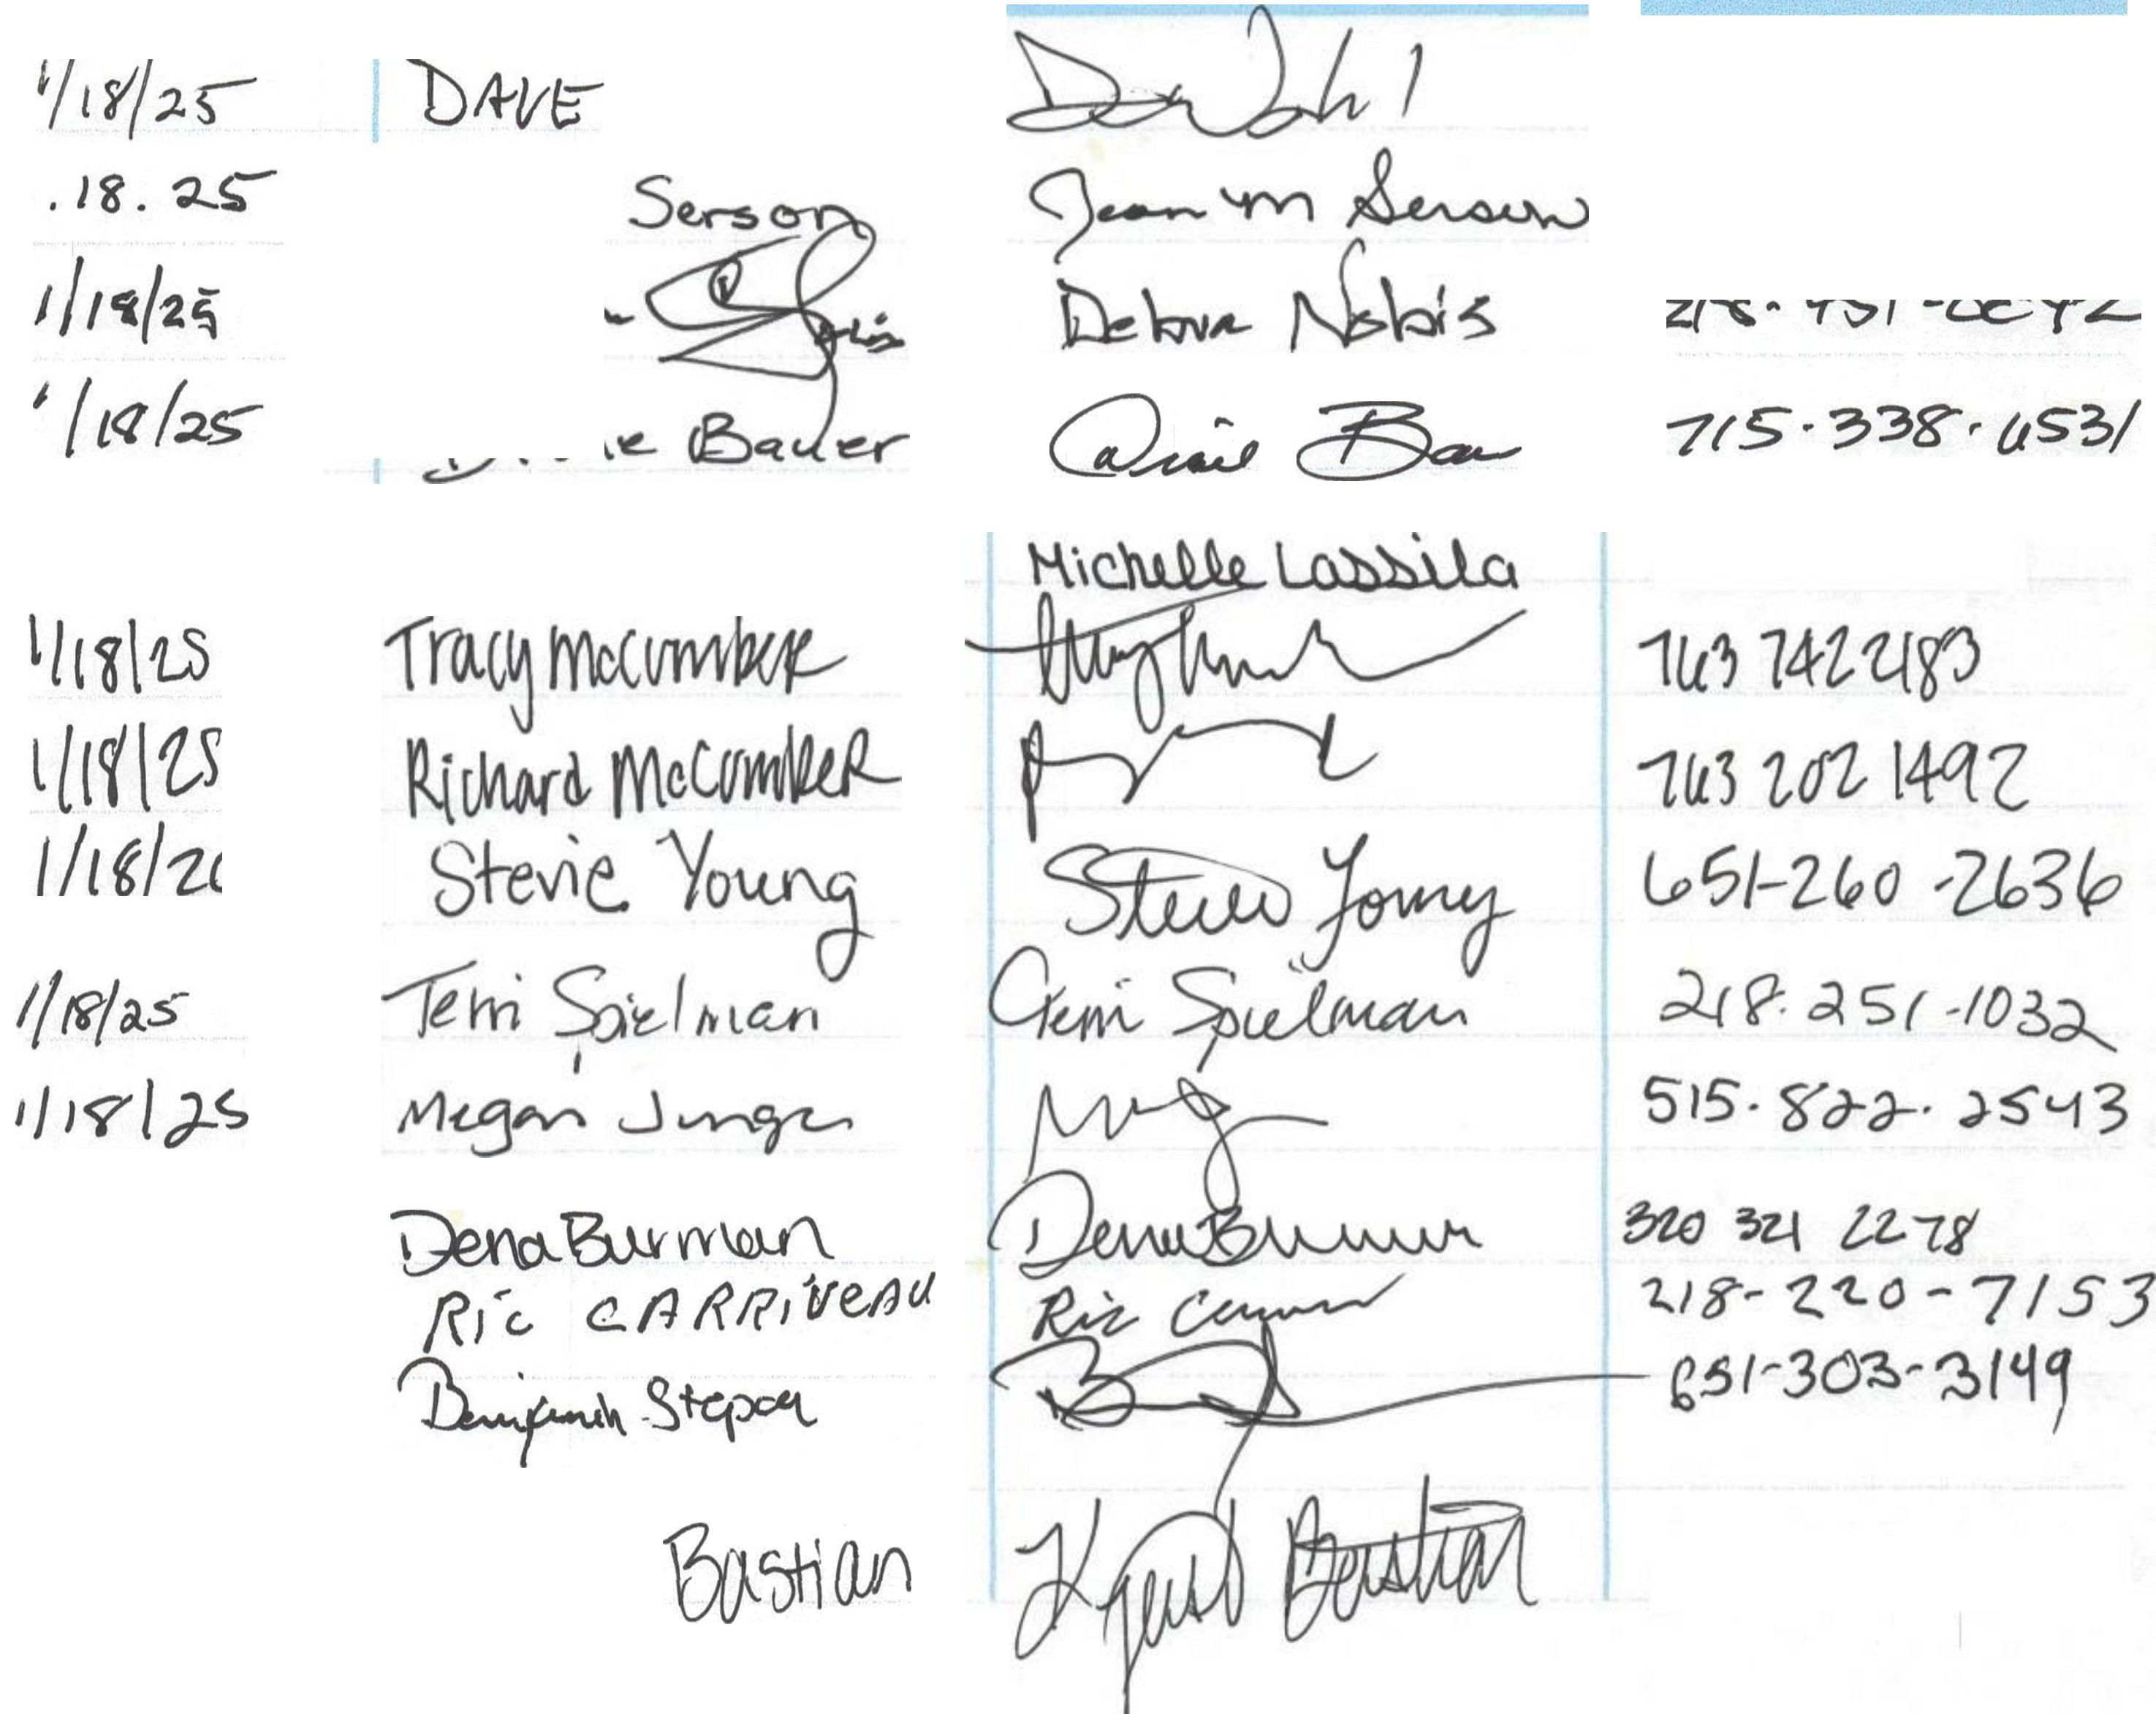 1/18/25 DAVE
.18.25 Serson Jean M Serson
1/18/25 Debra Nobis
1/18/25 Bauer 715-338-6531
Michelle Lassila
1/18/25 Tracy McCumber 763 742 2183
1/18/25 Richard McCumber 763 202 1492
1/18/2 Stevie Young Stevie Young 651-260-2636
1/18/25 Terri Spielman Terri Spielman 218-251-1032
1/18/25 Megan Junge 515-822-2543
Dena Burman Dena Burman 320 321 2278
Ric CARRiveau Ric 218-220-7153
Benjamin 651-303-3149
Bastian Bastian